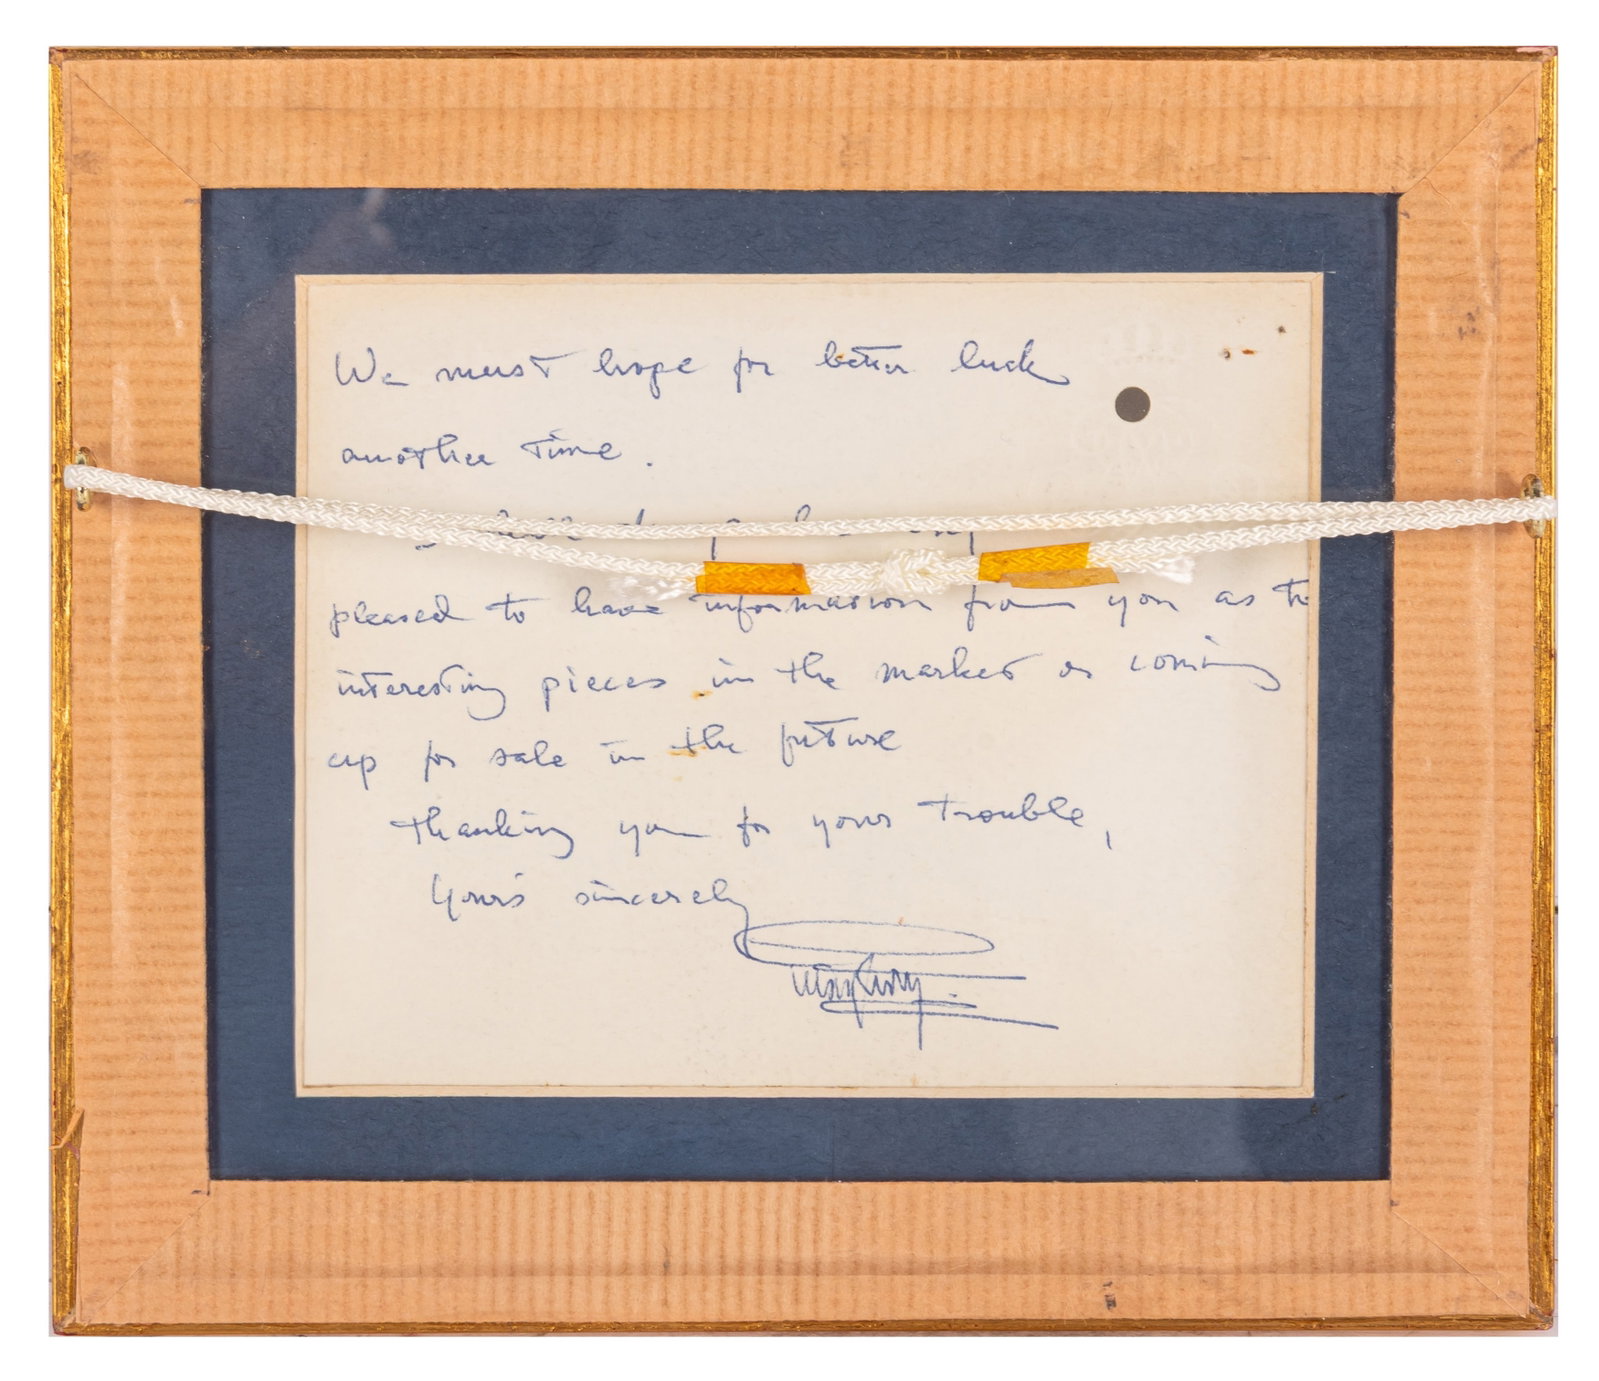 We must hope for better luck
another time.
I shall
pleased to have information from you as to
interesting pieces in the market or coming
up for sale in the future
thanking you for your trouble,
Yours sincerely